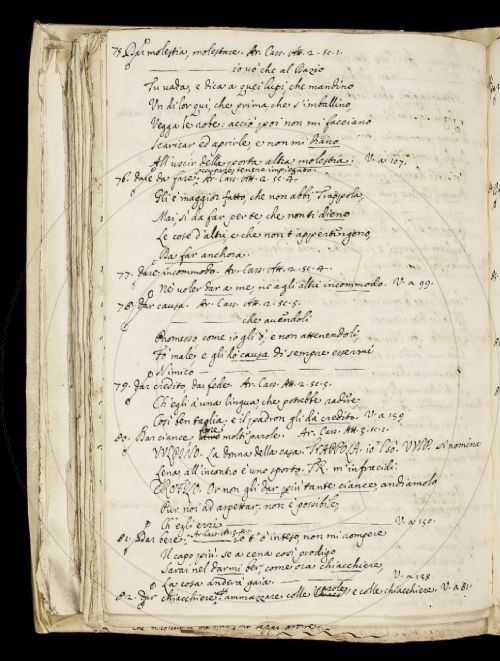 75. Dar molestia, molestare. Ar. Cass. Att. 2. sc. 1.
io vo' che al Bazio
Tu vada, e dica a quei lupi, che mandino
Un di lor qui, che prima che s'imballino,
Vegga le robe: acciò poi non mi facciano
Scaricar ed aprirle, e non mi diano
All'uscir della porta altra molestia: V. a 107.
76. Dare da fare, occupare, tenere impiegato. Ar. Cass. Att. 2. sc. 4.
Gli è maggior fatto, che non abbi, Trappola,
Mai, si da far per te che non ti dieno
Le cose d'altri, e che non t'appertengono,
Da far anchora.
77. Dare incommodo. Ar. Cass. Att. 2. sc. 4.
Nè voler dar a me, ne agli altri incommodo. V. a 99.
78. Dar causa. Ar. Cass. Att. 2. sc. 5.
che avendoli
Promesso come io gli ò, e non attenendoli,
Fo male, e gli ho causa di sempre essermi
Nimico
79. Dar credito, dar fede. Ar. Cass. Att. 2. sc. 5.
Ch'egli à una lingua che potrebbe radere
Così ben taglia, e il padron gli dà credito. V. a 159
80. Dar ciance, molte parole. Ar. Cass. Att. 3. sc. 2.
VULPINO. La donna della casa. TRAPPOLA. io l'so. VULP. si nomina
Lena, all'incontro è uno sporto. TR. m'infracidi.
EROFILO. Or non gli dar più tante ciance, andiamolo
Pur noi ad aspettar, non è possibile
Ch'egli erri V. a 150.
81. Dar bere. Ar. Cass. Att. 3. sc. io t'ò inteso, non mi rompere
Il capo più: se a cena così prodigo
Sarai nel darmi ber come ora chiacchiere,
La cosa anderà gaia. V. a 138
82. Dar chiacchiere, ammazzare colle parole, e colle chiacchiere. V. a 81.